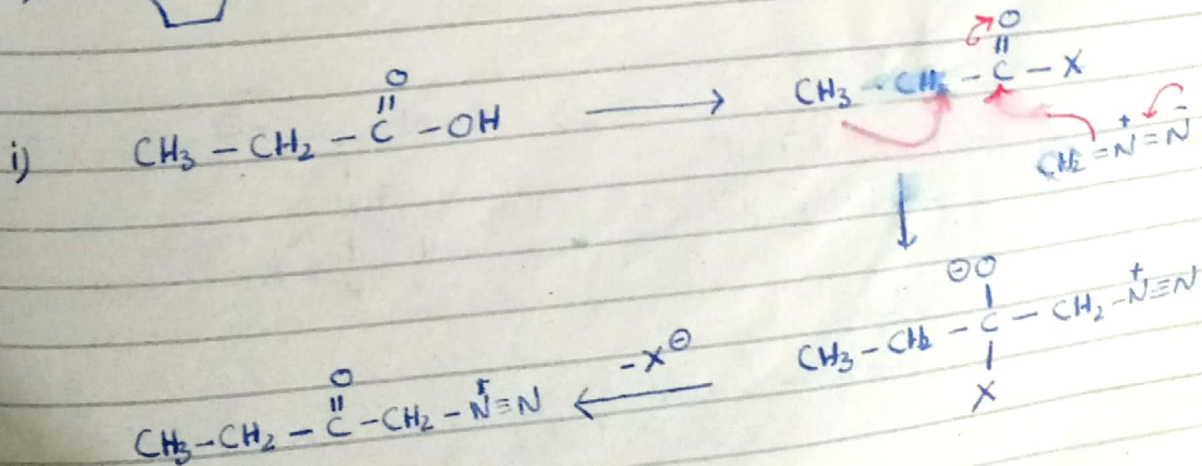 i) CH₃ – CH₂ – C(=O) – OH ⟶ CH₃ – CH₂ – C(=O) – X
CH₂ = N⁺ = N⁻
CH₃ – CH₂ – C(O⊖)(X) – CH₂ – N⁺ ≡ N
– X⊖
CH₃ – CH₂ – C(=O) – CH₂ – N⁺ ≡ N